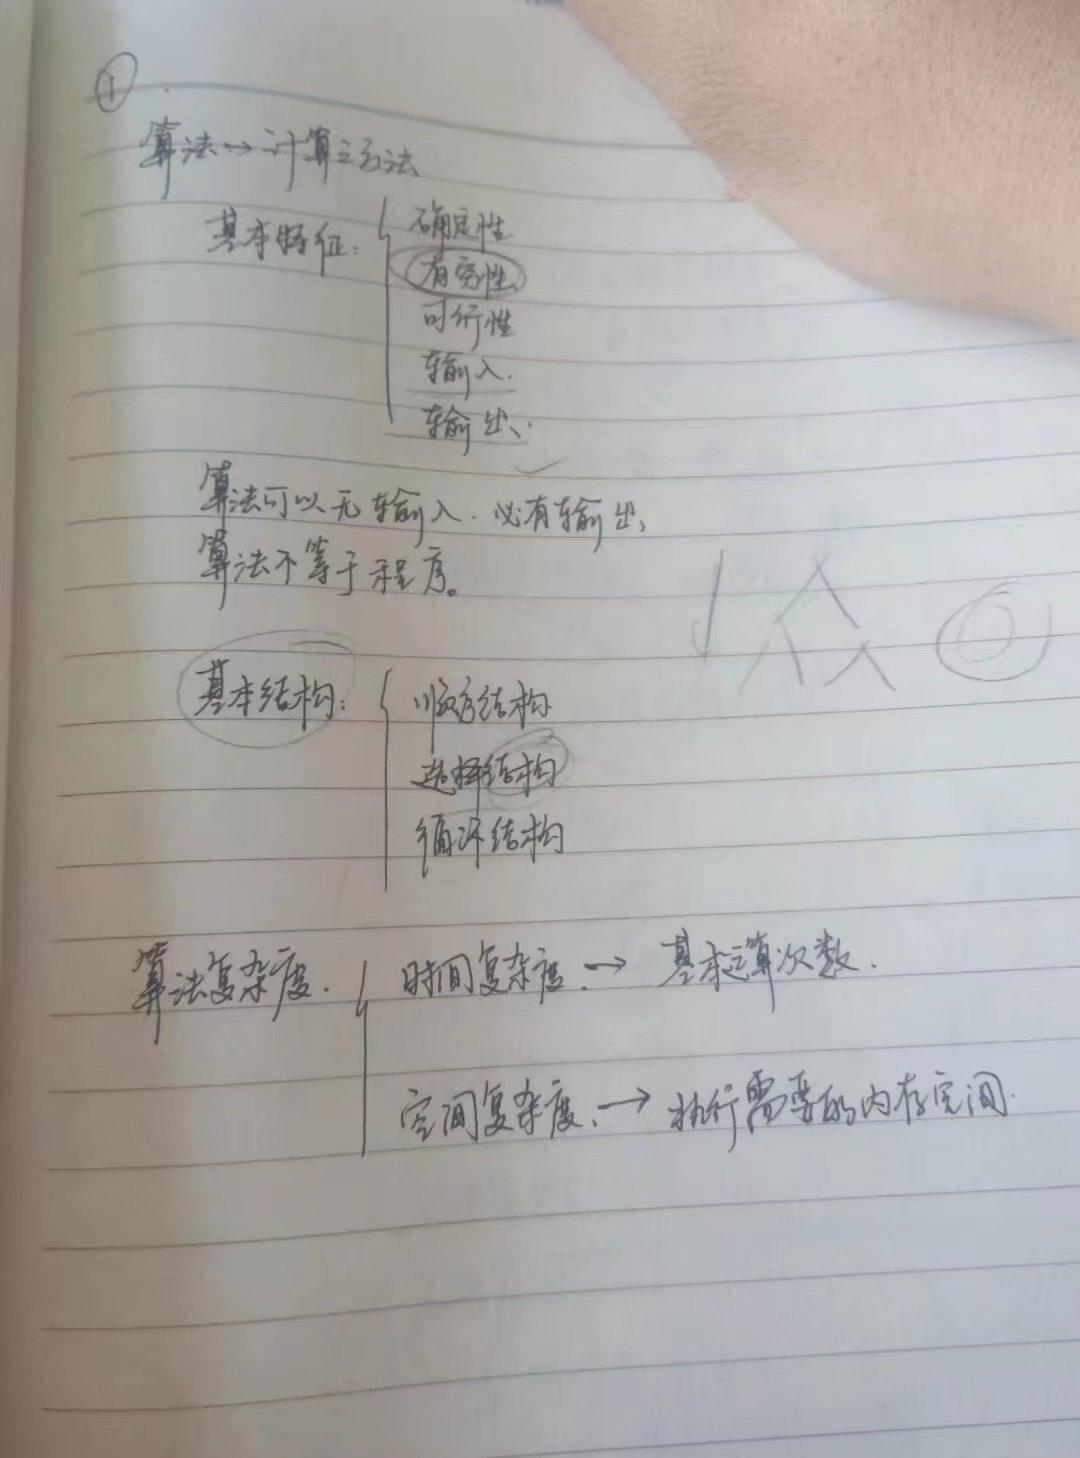 ①
算法→计算之方法
基本特征：
确定性
有穷性
可行性
输入.
输出、.
算法可以无输入.必有输出,
算法不等于程序。
基本结构：
顺序结构
选择结构
循环结构
算法复杂度.
时间复杂度.→基本运算次数.
空间复杂度.→执行需要的内存空间.